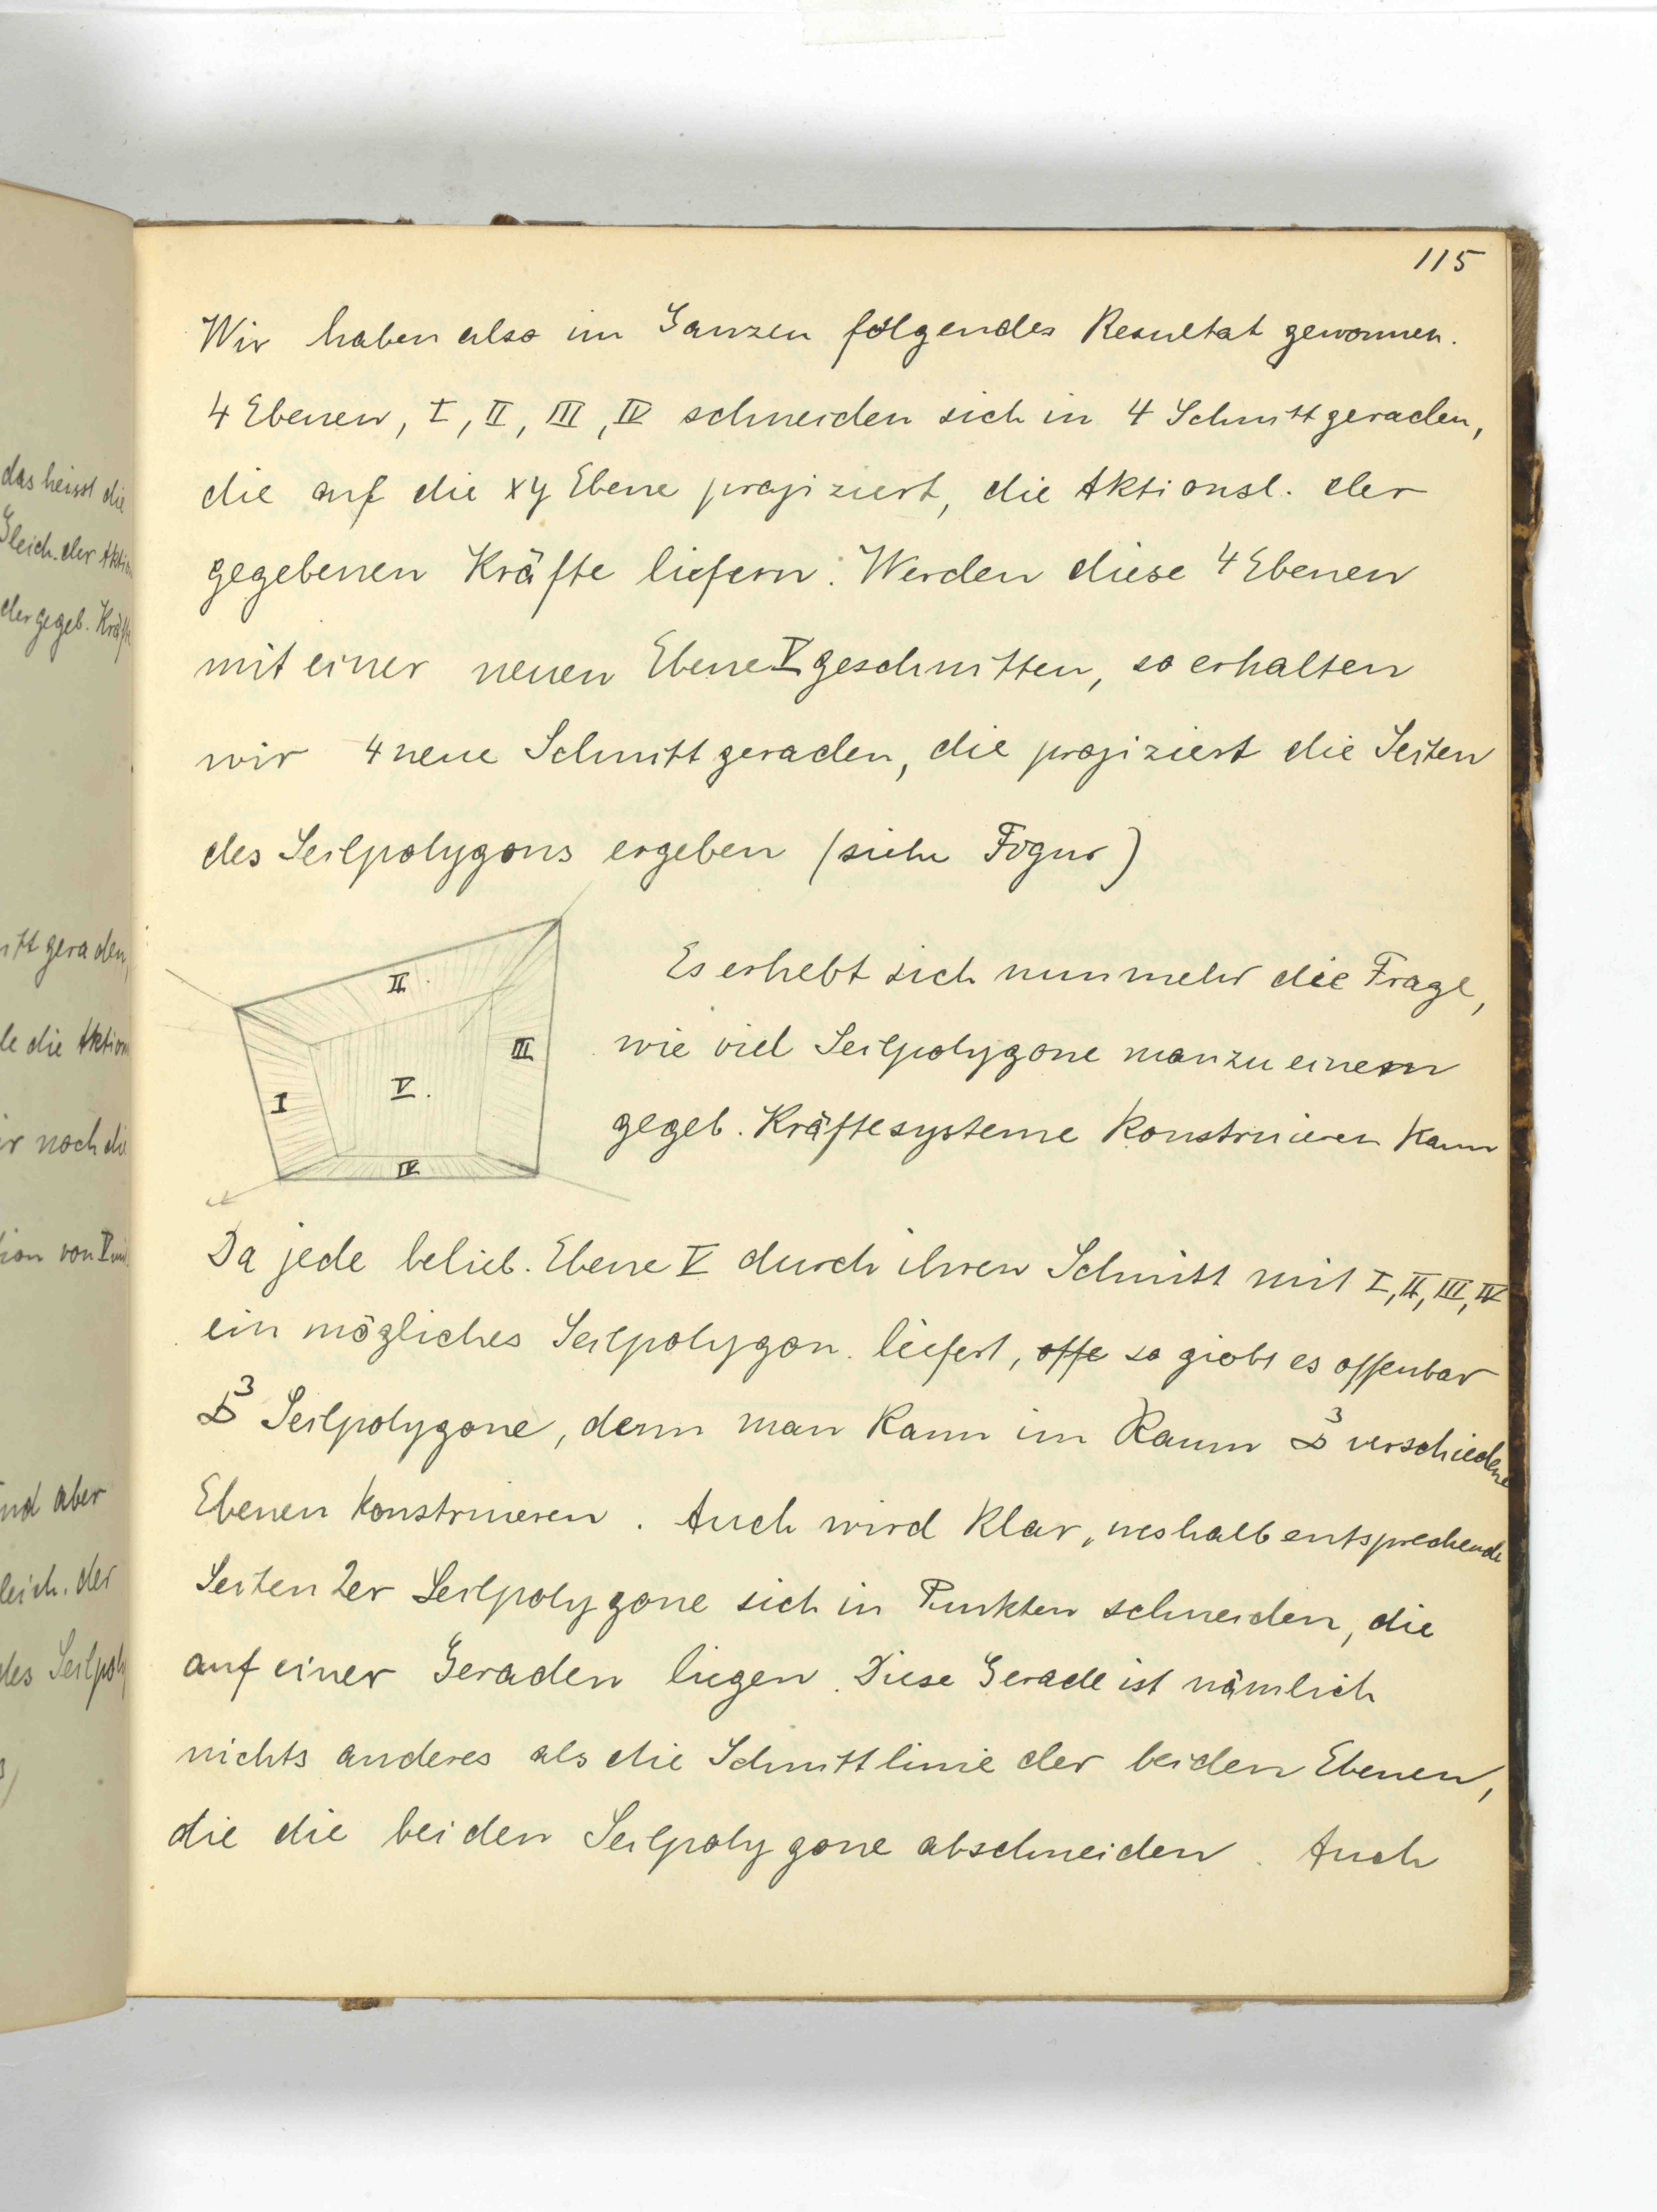 das heisst die
Gleich. der Aktio
der gegeb. Kräfte
itt geraden,
le die Aktion
ir noch die
tion von V mi
und aber
leich. der
des Seilpoly
3)
115
Wir haben also im Ganzen folgendes Resultat gewonnen.
4 Ebenen, I, II, III, IV schneiden sich in 4 Schnittgeraden,
die auf die xy Ebene projiziert, die Aktionsl. der
gegebenen Kräfte liefern. Werden diese 4 Ebenen
mit einer neuen Ebene V geschnitten, so erhalten
wir 4 neue Schnittgeraden, die projiziert die Seiten
des Seilpolygons ergeben (siehe Figur)
II
III
V.
I
IV
Es erhebt sich nunmehr die Frage,
wie viel Seilpolygone man zu einem
gegeb. Kräftesysteme konstruieren kann
Da jede belieb. Ebene V durch ihren Schnitt mit I, II, III, IV
ein mögliches Seilpolygon liefert, offe so giebt es offenbar
∞³ Seilpolygone, denn man kann im Raum ∞³ verschiedene
Ebenen konstruieren. Auch wird klar, weshalb entsprechende
Seiten 2er Seilpolygone sich in Punkten schneiden, die
auf einer Geraden liegen. Diese Gerade ist nämlich
nichts anderes als die Schnittlinie der beiden Ebenen,
die die beiden Seilpolygone abschneiden. Auch